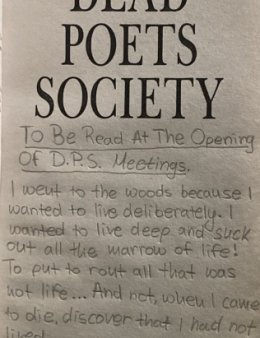 DEAD
POETS
SOCIETY
To Be Read At The Opening
Of D.P.S. Meetings.
I went to the woods because I
wanted to live deliberately. I
wanted to live deep and suck
out all the marrow of life!
To put to rout all that was
not life... And not, when I came
to die, discover that I had not
lived.